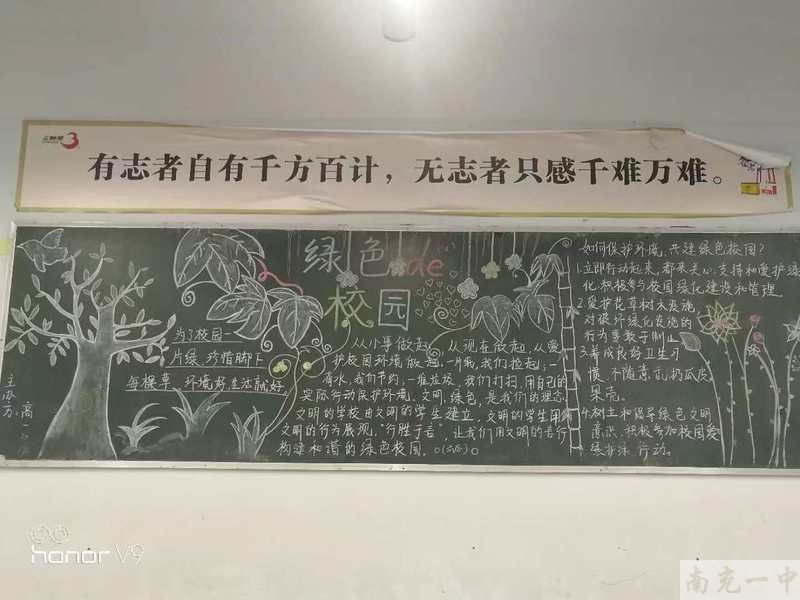 3
有志者自有千方百计，无志者只感千难万难。
绿色de
校园
为了校园一
片绿，珍惜脚下
每棵草，环境好，生活就好
主办方：高一
从小事做起，从现在做起，从爱
护校园环境做起，一片纸，我们捡起；一
滴水，我们节约；一堆垃圾，我们打扫，用自己的
实际行动保护环境。文明，绿色，是我们的理念，
文明的学校由文明的学生建立，文明的学生用
文明的行为展现，“行胜于言”，让我们用文明的言行
构造和谐的绿色校园。
如何保护环境，共建绿色校园？
1.立即行动起来，都来关心、支持和爱护绿
化，积极参与校园绿化建设和管理。
2.爱护花草树木及设施，
对破坏绿化设施的
行为要敢于制止
3.养成良好卫生习
惯，不随意乱扔瓜皮
果壳。
4.树立和倡导绿色文明
意识，积极参加校园爱
绿护绿行动。
honor V9
南充一中